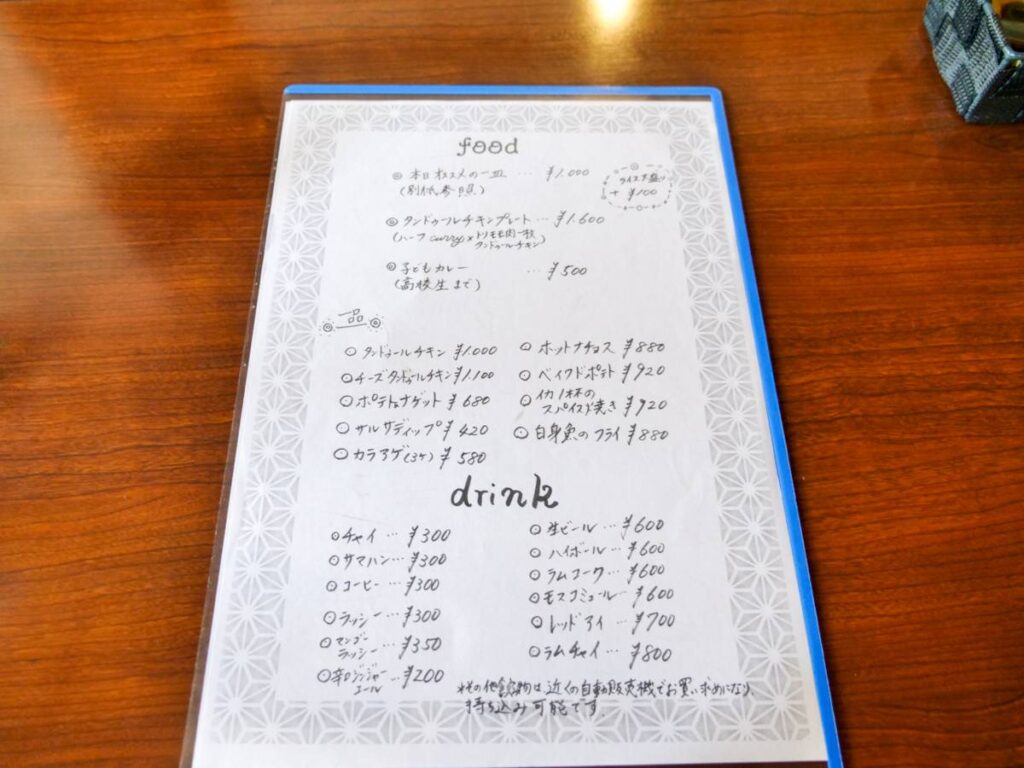 food
◎ 本日オススメの一皿 … ¥1.000
(別紙参照)
ライス大盛り
+ ¥100
◎ タンドゥールチキンプレート … ¥1.600
(ハーフcurry×トリモモ肉一枚
タンドゥールチキン)
◎ 子どもカレー … ¥500
(高校生まで)
一品
○ タンドゥールチキン ¥1.000
○ チーズタンドゥールチキン ¥1.100
○ ポテト&ナゲット ¥680
○ サルサディップ ¥420
○ カラアゲ(3ケ) ¥580
○ ホットナチョス ¥880
○ ベイクドポテト ¥920
○ イカ1杯の
スパイス焼き ¥920
○ 白身魚のフライ ¥880
drink
○ チャイ … ¥300
○ サマハン … ¥300
○ コーヒー … ¥300
○ ラッシー … ¥300
○ マンゴー
ラッシー … ¥350
○ 辛口ジンジャー
エール … ¥200
○ 生ビール … ¥600
○ ハイボール … ¥600
○ ラムコーク … ¥600
○ モスコミュール … ¥600
○ レッドアイ … ¥700
○ ラムチャイ … ¥800
※その他飲物は、近くの自動販売機でお買い求めになり、
持ち込み可能です。